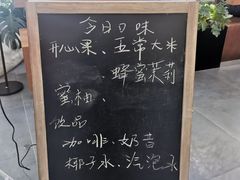 今日口味
开心果、五常大米
蜂蜜茉莉
蜜柚、
饮品
咖啡、奶昔
椰子水、汽泡水